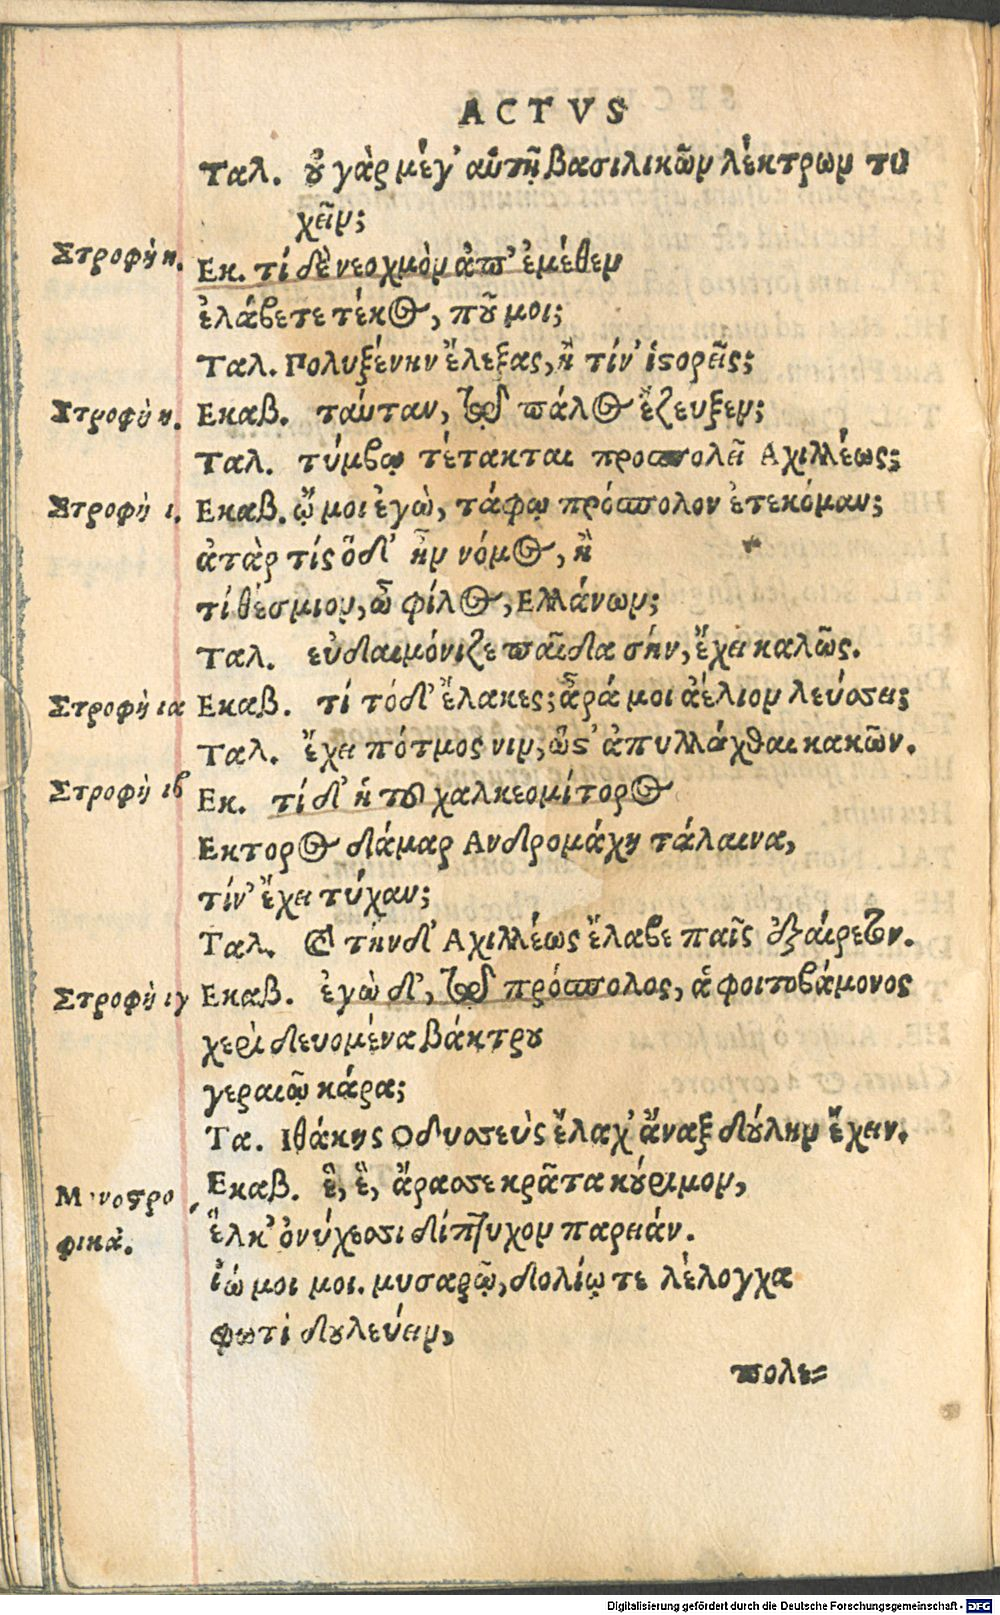 ACTVS
Ταλ. οὐ γὰρ μέγ' αὐτῇ βασιλικῶν λέκτρων τυ
χεῖν;
Στροφὴ η.
Εκ. τί δὲ νεοχμὸν ἀπ' ἐμέθεν
ἐλάβετε τέκος, ποῦ μοι;
Ταλ. Πολυξένην ἔλεξας, ἢ τίν' ἱστορεῖς;
Στροφὴ η.
Εκαβ. ταύταν, τῷ πάλος ἔζευξεν;
Ταλ. τύμβῳ τέτακται προσπολεῖ Αχιλλέως;
Στροφὴ ι.
Εκαβ. ᾤ μοι ἐγὼ, τάφῳ πρόσπολον ἐτεκόμαν;
ἀτὰρ τίς ὅδ' ἦν νόμος, ἢ
τί θέσμιον, ὦ φίλος, Ελλάνων;
Ταλ. εὐδαιμόνιζε παῖδα σήν, ἔχει καλῶς.
Στροφὴ ια
Εκαβ. τί τόδ' ἔλακες; ἆρά μοι ἀέλιον λεύσσει;
Ταλ. ἔχει πότμος νιν, ὥστ' ἀπυλλάχθαι κακῶν.
Στροφὴ ιβ
Εκ. τί δ' ἡ τοῦ χαλκεομίτορος
Εκτορος δάμαρ Ανδρομάχη τάλαινα,
τίν' ἔχει τύχαν;
Ταλ. καὶ τήνδ' Αχιλλέως ἔλαβε παῖς ἐξαίρετον.
Στροφὴ ιγ
Εκαβ. ἐγὼ δ', τῷ πρόσπολος, ἁ φοιτοβάμονος
χερὶ δευομένα βάκτρου
γεραιῷ κάρα;
Τα. Ιθάκης Οδυσσεὺς ἔλαχ' ἄναξ δούλην ἔχειν.
Μονοστρο
φικά.
Εκαβ. ἒ, ἒ, ἄρασσε κρᾶτα κούριμον,
ἕλκ' ὀνύχεσσι δίπτυχον παρειάν.
ἰώ μοι μοι. μυσαρῷ, δολίῳ τε λέλογχα
φωτὶ δουλεύειν,
πολε=
Digitalisierung gefördert durch die Deutsche Forschungsgemeinschaft - DFG